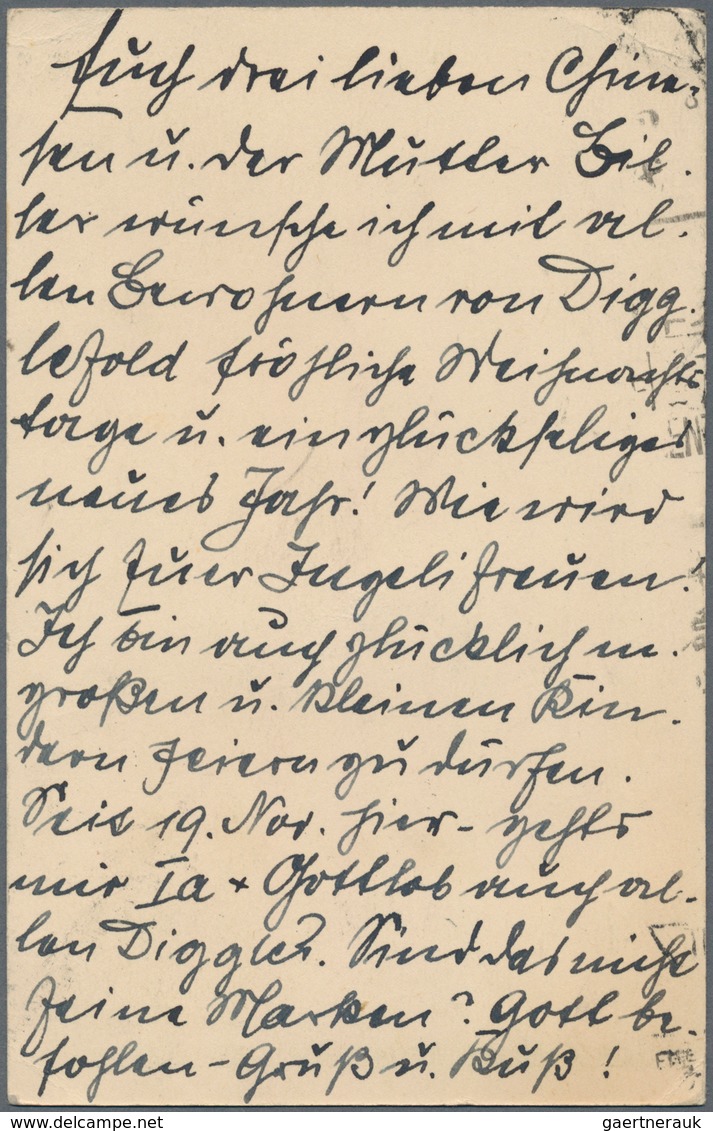 Euch drei lieben Chine-
sen u. der Mutter Bil-
ler wünsche ich mit al-
len Bewohnern von Digg-
lefold fröhliche Weihnachts
tage u. ein glückseliges
neues Jahr! Wie wird
sich Euer Ingeli freuen!
Ich bin auch glücklich m.
großen u. kleinen Kin-
dern feiern zu dürfen.
Seit 19. Nov. hier - gehts
mir Ia + Gottlob auch al-
len Digglef. Sind das nicht
feine Marken? Gott be-
fohlen - Gruß u. Kuß!
gaertnerauk